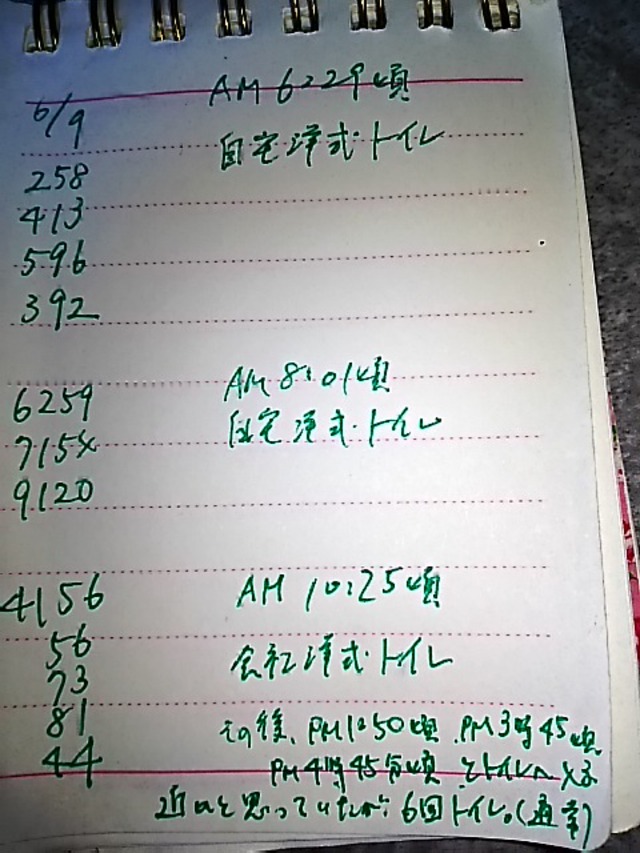 6/9
AM 6:29頃
自宅洋式トイレ
258
413
596
392
AM 8:01頃
自宅洋式トイレ
6259
715
9120
4156
AM 10:25頃
56
会社洋式トイレ
73
81
その後、PM1:50頃、PM3時45頃
44
PM4時45分頃とトイレへ
近いと思っていたが、6回トイレ。(通常)